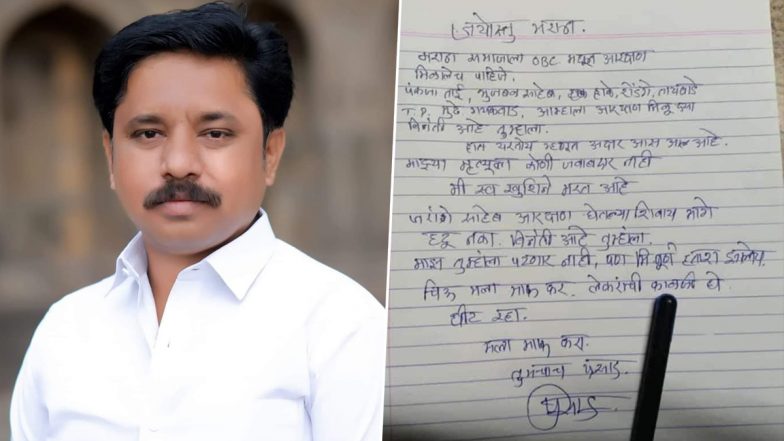 जयोस्तु मराठा.
मराठा समाजाला OBC मधून आरक्षण
मिळालेच पाहिजे.
पंकजा ताई, भुजबळ साहेब, हाके, शेंडगे, तायवाडे
T. P. मुंडे गायकवाड, आम्हाला आरक्षण मिळू द्या
विनंती आहे तुम्हाला.
हात थरतोय म्हणून अक्षर आस आल आहे.
माझ्या मृत्यूला कोणी जवाबदार नाही
मी स्व खुशिने मरत आहे
जरांगे साहेब आरक्षण घेतल्या शिवाय मागे
हटू नका. विनंती आहे तुम्हांला.
माझ तुम्हांला नाही, पण मि पूर्ण हताश झालोय.
चिऊ मला माफ कर. लेकरांची काळजी घे.
धीट रहा.
मला माफ करा.
तुमचाच प्रसाद.
प्रसाद.